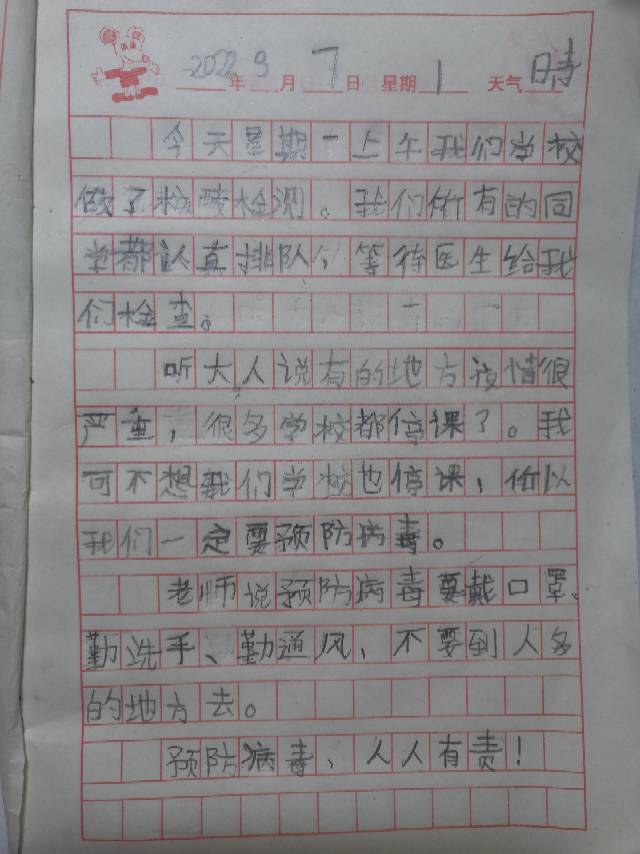 2022年9月7日 星期1 天气晴
今天星期一上午我们学校
做了核酸检测。我们所有的同
学都认真排队,等待医生给我
们检查。
听大人说有的地方疫情很
严重,很多学校都停课了。我
可不想我们学校也停课,所以
我们一定要预防病毒。
老师说预防病毒要戴口罩、
勤洗手、勤通风、不要到人多
的地方去。
预防病毒、人人有责!